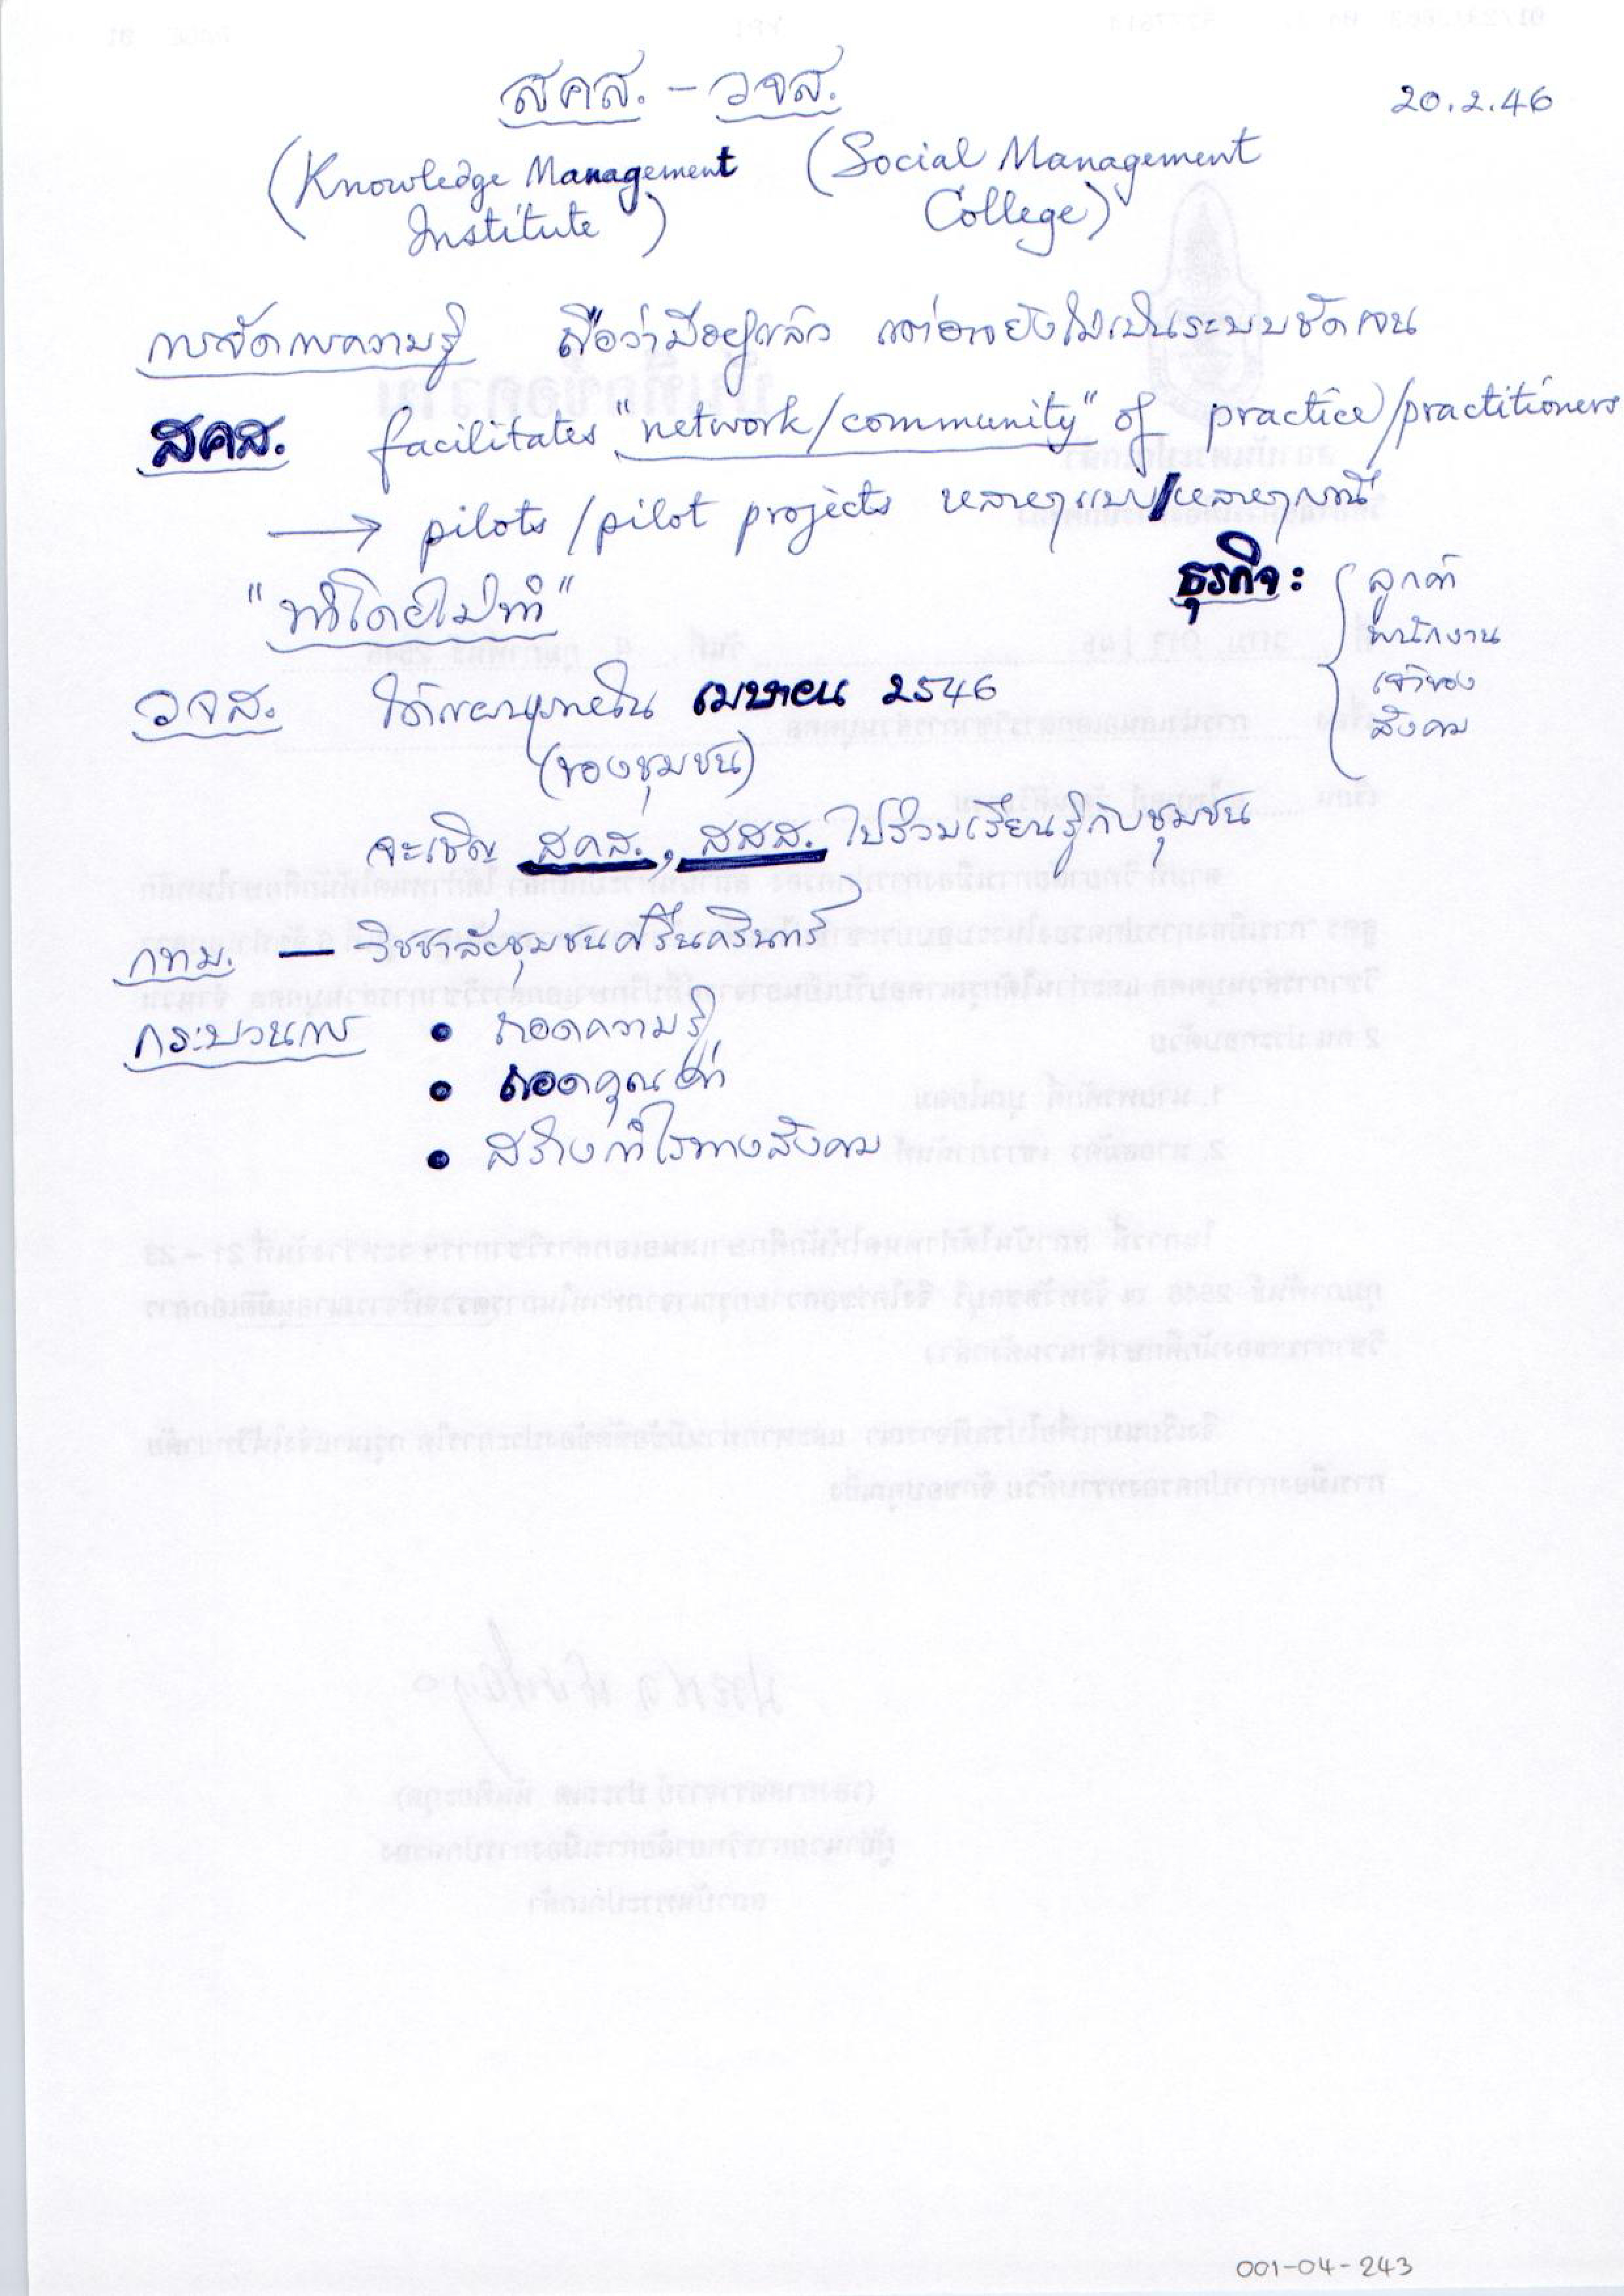 สคส. - วจส.
20.2.46
(Knowledge Management Institute) (Social Management College)
การจัดการความรู้ ถือว่ามีอยู่แล้ว แต่อาจยังไม่เป็นระบบชัดเจน
สคส. facilitates "network/community" of practice/practitioners
→ pilots/pilot projects หลายๆแบบ/หลายๆกรณี
"ทำโดยไม่ทำ"
ธุรกิจ: ลูกค้า
พนักงาน
เจ้าของ
สังคม
วจส. ได้แผนภายใน เมษายน 2546
(ของชุมชน)
จะเชิญ สคส., สสส. ไปร่วมเรียนรู้กับชุมชน
กทม. — วิชชาลัยชุมชนศรีนครินทร์
กระบวนการ • ถอดความรู้
• ถอดคุณค่า
• สร้างกำไรทางสังคม
001-04-243